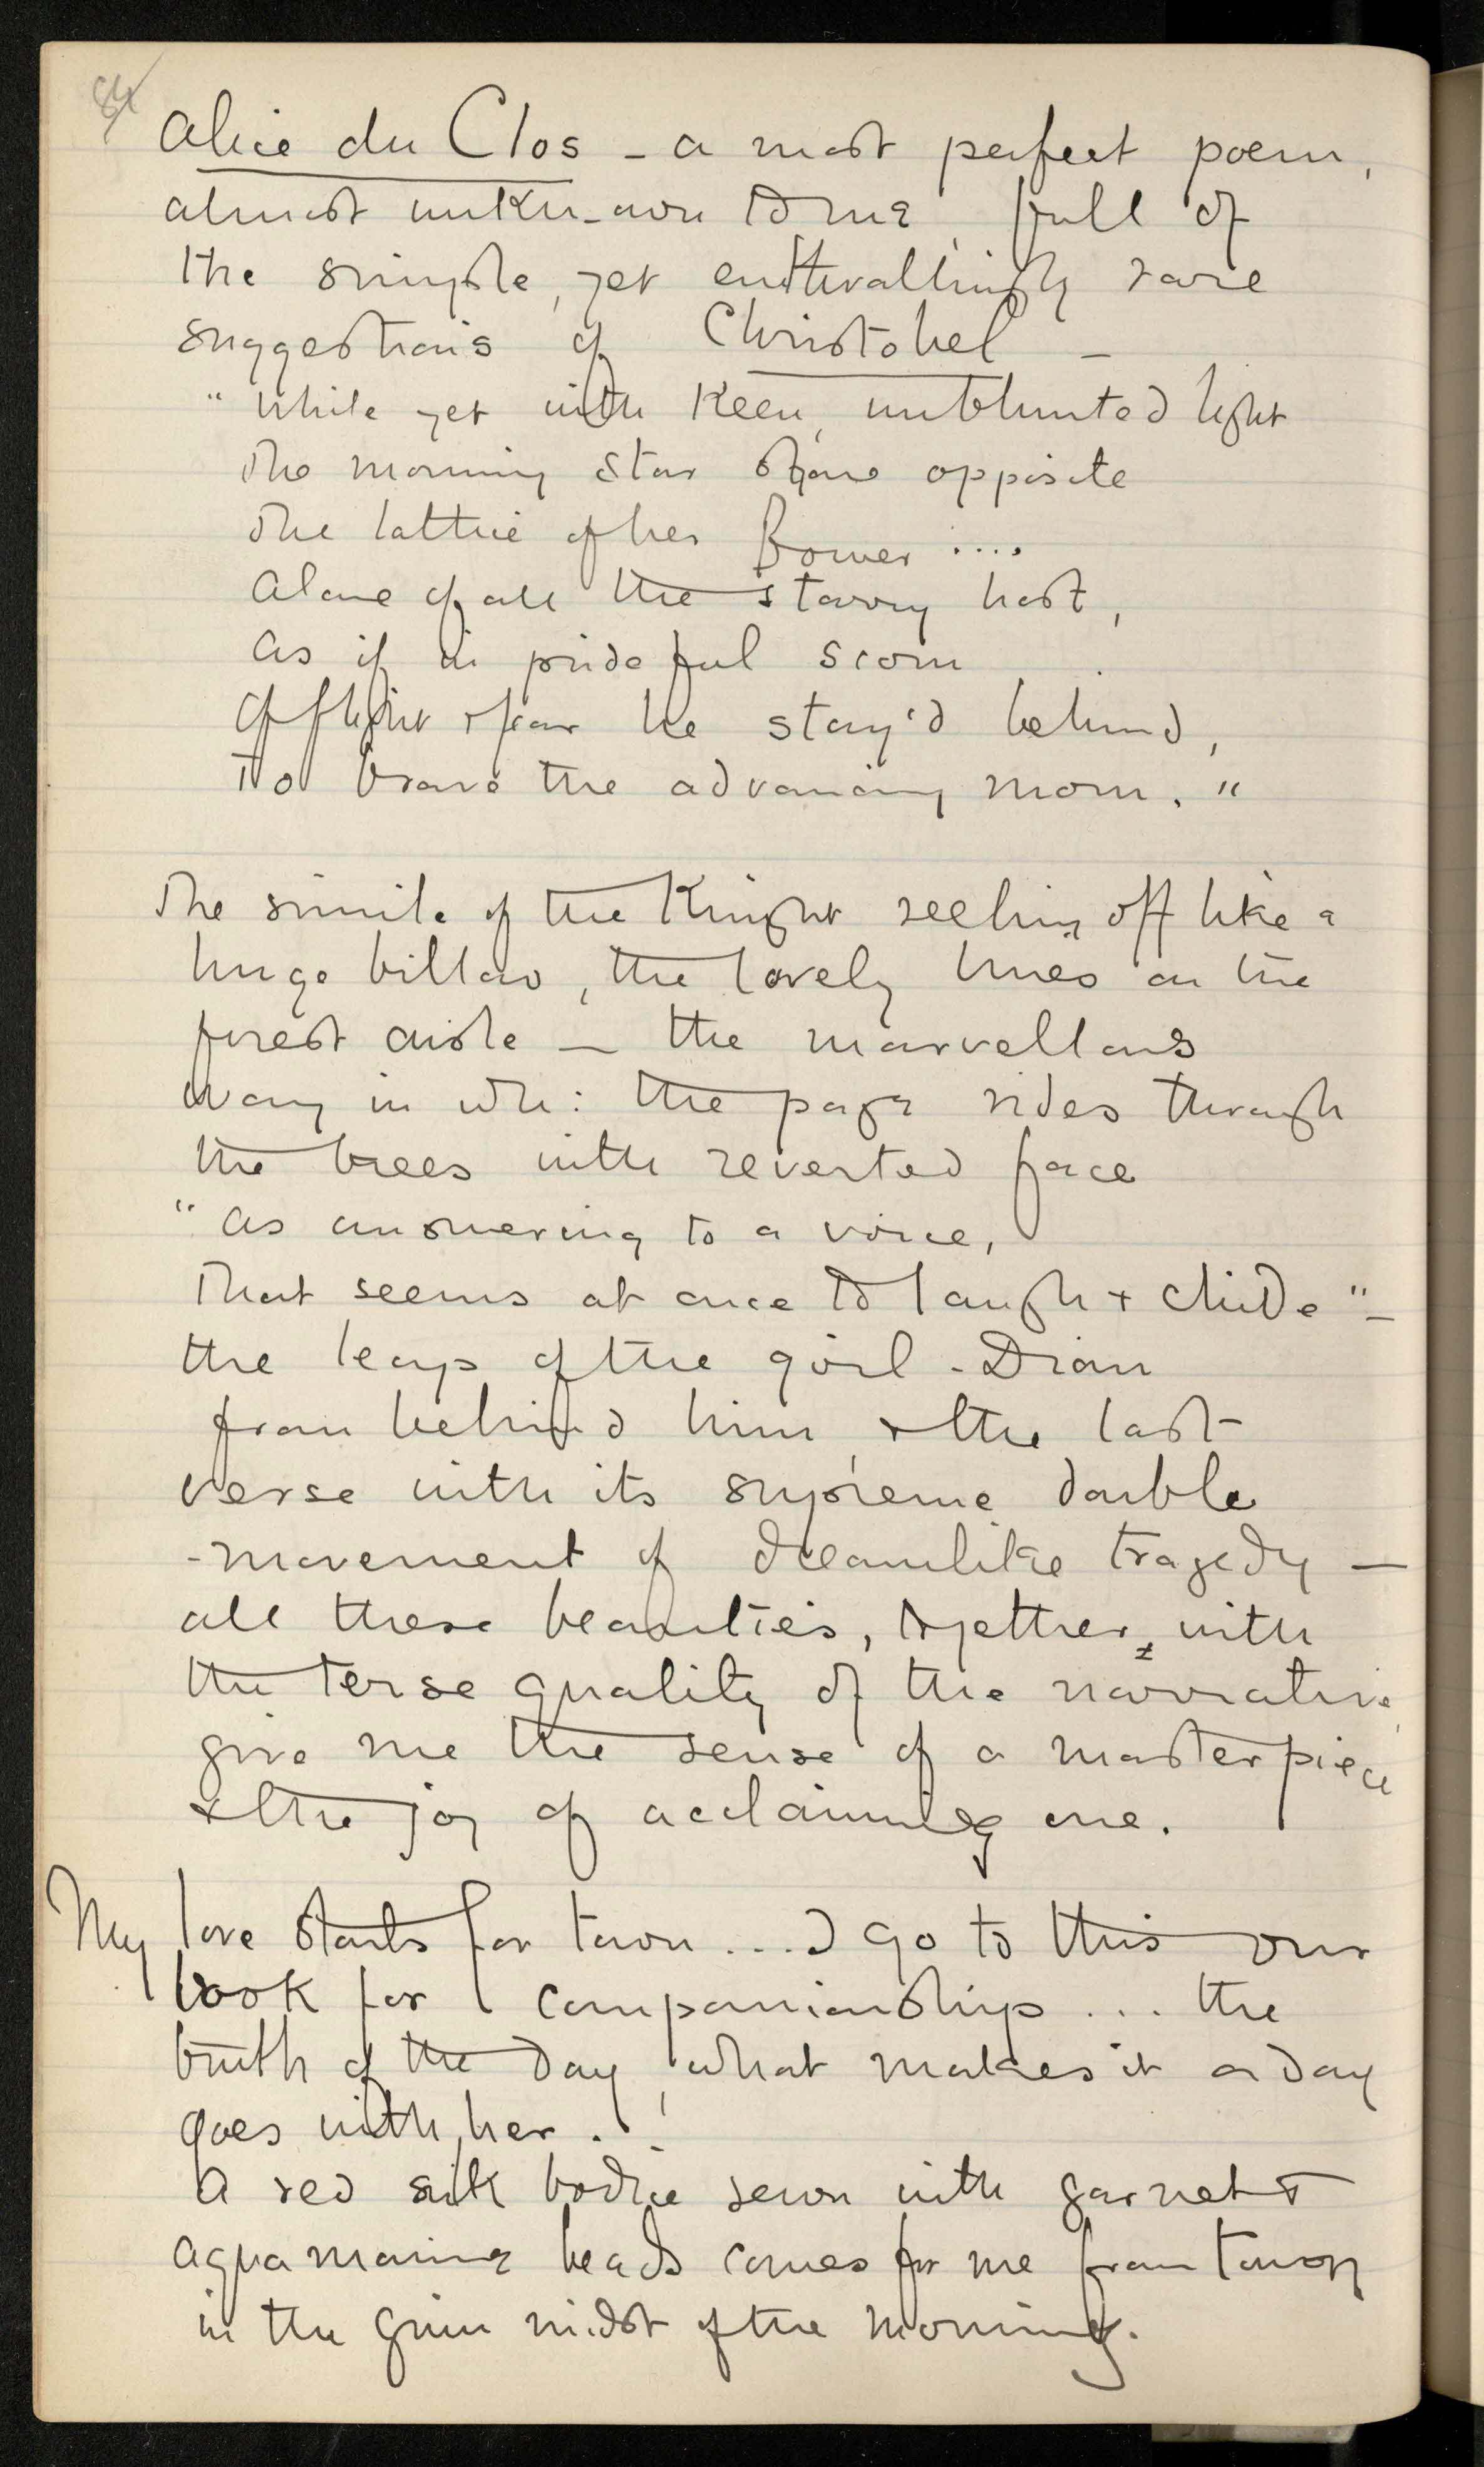 84
Alice du Clos - a most perfect poem,
almost unkn-own to me, full of
the simple, yet enthrallingly rare
suggestions of Christobel -
"While yet with keen, unblunted light
The morning star shone opposite
The lattice of her Bower ....
Alone of all the starry host,
As if in prideful scorn
Of flight & fear he stay'd behind,
To brave the advancing morn."
The simile of the Knight reeling off like a
huge billow, the lovely lines on the
forest aisle — the marvellous
way in wh: the page rides through
the trees with reverted face
"As answering to a voice,
That seems at once to laugh + chide" -
the leaps of the girl - Dian
from behind him, & the last
verse with its supreme double
-movement of dreamlike tragedy —
all these beauties, together, with
the terse quality of the narrative,
give me the sense of a masterpiece
& the joy of acclaiming one.
My love starts for town .... I go to this our
book for companionship ... the
truth of the day, what makes it a day
goes with her.
A red silk bodice sewn with garnet &
aquamarine beads comes for me from town
in the grim midst of the morning.